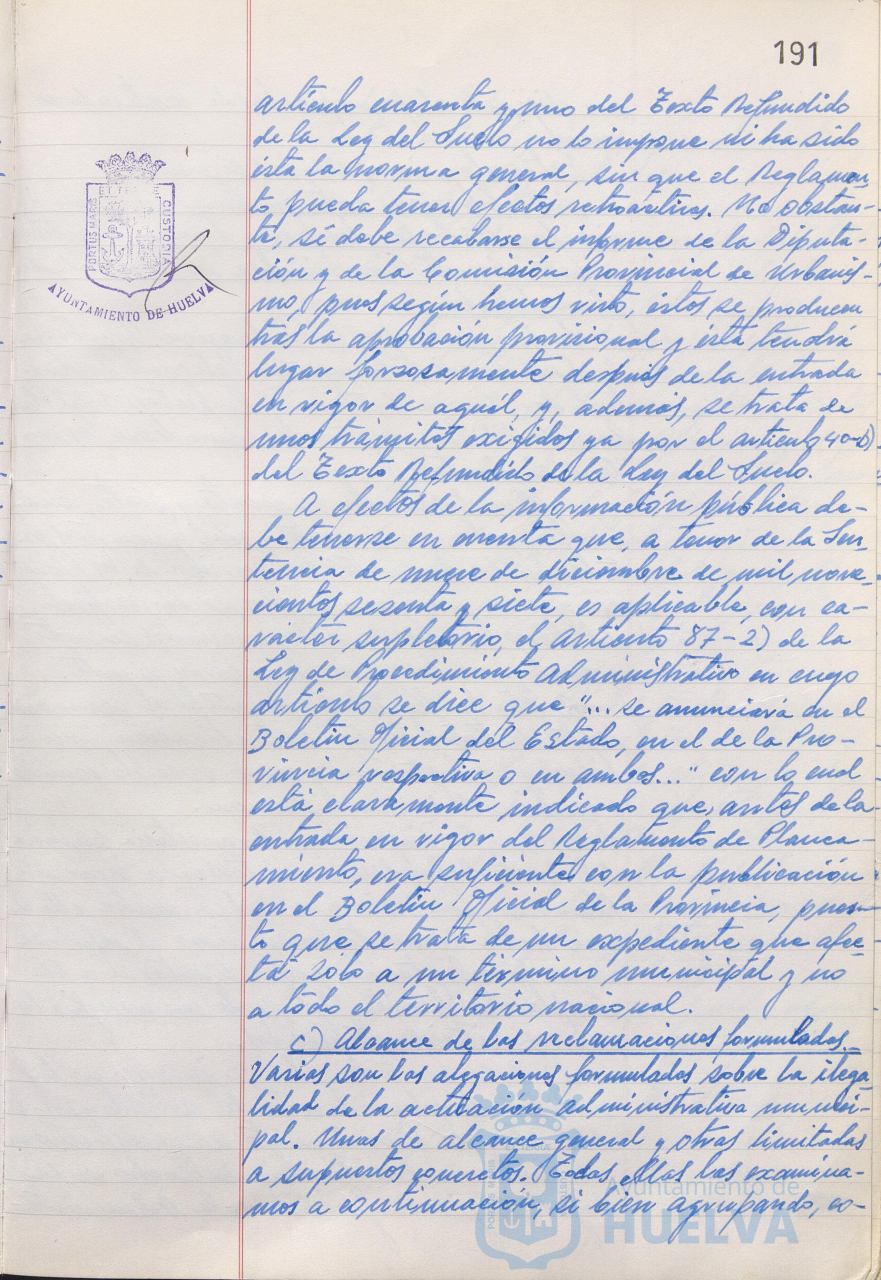 191
artículo cuarenta y uno del Texto Refundido
de la Ley del Suelo no lo impone ni ha sido
ésta la norma general, sin que el Reglamen-
to pueda tener efectos retroactivos. No obstan-
te, sí debe recabarse el informe de la Diputa-
ción y de la Comisión Provincial de Urbanis-
mo, pues según hemos visto, éstos se producen
tras la aprobación provisional y ésta tendrá
lugar forzosamente después de la entrada
en vigor de aquél, y, además, se trata de
unos trámites exigidos ya por el artículo 40-2)
del Texto Refundido de la Ley del Suelo.
A efectos de la información pública de-
be tenerse en cuenta que, a tenor de la Sen-
tencia de nueve de diciembre de mil nove-
cientos sesenta y siete, es aplicable, con ca-
racter supletorio, el artículo 87-2) de la
Ley de Procedimiento Administrativo en cuyo
artículo se dice que "... se anunciará en el
Boletín Oficial del Estado, en el de la Pro-
vincia respectiva o en ambos..." con lo cual
está claramente indicado que, antes de la
entrada en vigor del Reglamento de Planea-
miento, era suficiente con la publicación
en el Boletín Oficial de la Provincia, pues-
to que se trata de un expediente que afec-
ta sólo a un término municipal y no
a todo el territorio nacional.
c) Alcance de las reclamaciones formuladas.-
Varias son las alegaciones formuladas sobre la ilega-
lidad de la actuación administrativa munici-
pal. Unas de alcance general y otras limitadas
a supuestos concretos. Todas ellas las examina-
mos a continuación, si bien agrupando, co-
PORTUS MARIS ET TERRAE CUSTODIA
AYUNTAMIENTO DE HUELVA
Ayuntamiento de
HUELVA